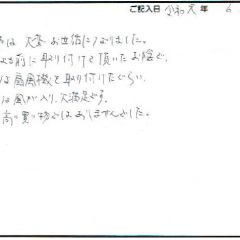 ご記入日 令和元年 6
は 大変 お世話になりました。
る前に取り付けて頂いたお陰で、
は扇風機を取り付けたぐらい
は風が入り、大満足です。
高い買い物ではありませんでした。